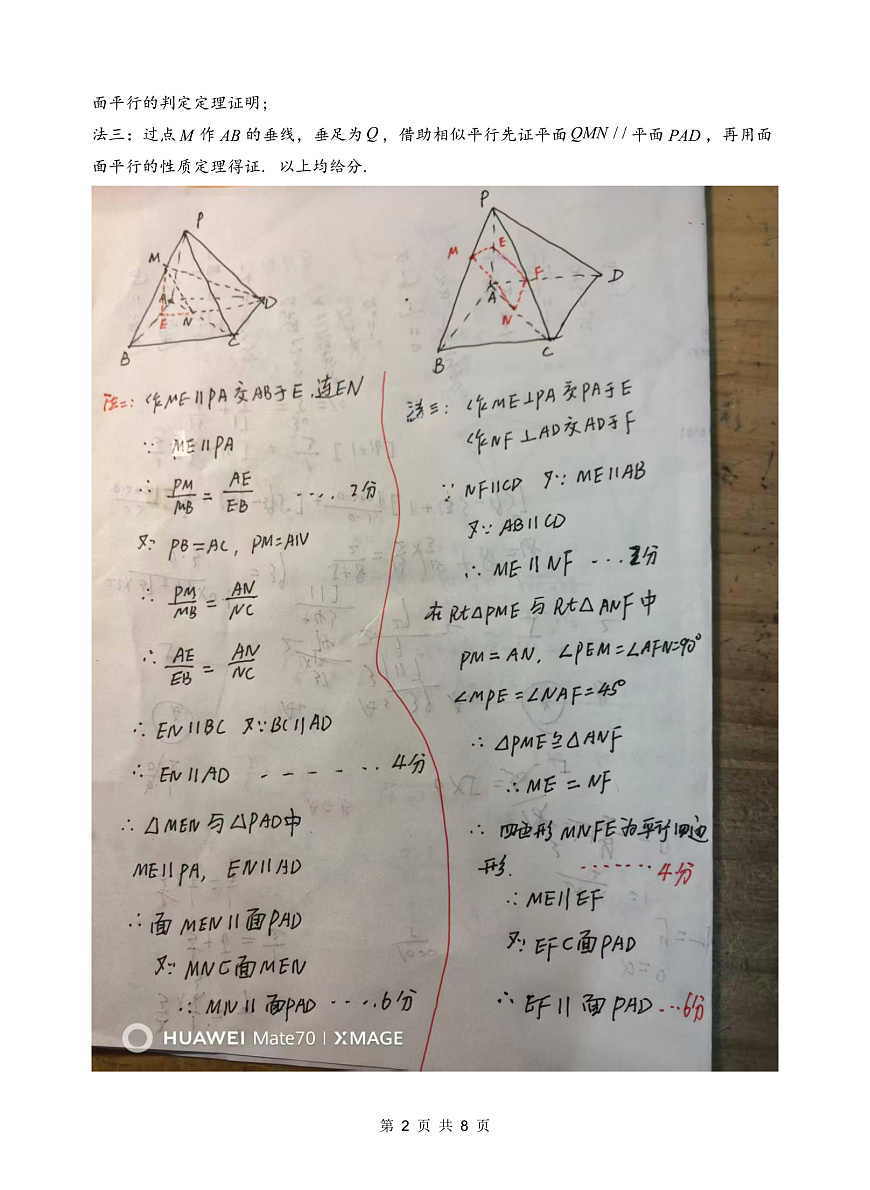 面平行的判定定理证明；
法三：过点 M 作 AB 的垂线，垂足为 Q ，借助相似平行先证平面 QMN // 平面 PAD ，再用面
面平行的性质定理得证． 以上均给分．
P
M
A
D
E
N
B
C
P
M
E
F
D
A
N
B
C
法二：作ME∥PA交AB于E，连EN
∵ ME∥PA
∴ PM/MB = AE/EB ····. 2分
又∵ PB=AC，PM=AN
∴ PM/MB = AN/NC
∴ AE/EB = AN/NC
∴ EN∥BC 又∵BC∥AD
∴ EN∥AD - - - - - ·· 4分
∴ △MEN与△PAD中
ME∥PA，EN∥AD
∴面 MEN∥面PAD
又∵ MN⊂面MEN
∴ MN∥面PAD ··· .6分
法三：作ME⊥PA交PA于E
作NF⊥AD交AD于F
∵ NF∥CD 又∵ ME∥AB
又∵ AB∥CD
∴ ME∥NF ··· 2分
在Rt△PME与Rt△ANF中
PM=AN，∠PEM=∠AFN=90°
∠MPE=∠NAF=45°
∴ △PME≌△ANF
∴ME=NF
∴ 四边形MNFE为平行四边
形. ······· 4分
∴ME∥EF
又∵ EF⊂面PAD
∴ EF∥面PAD ··· 6分
HUAWEI Mate70 | XMAGE
第 2 页 共 8 页